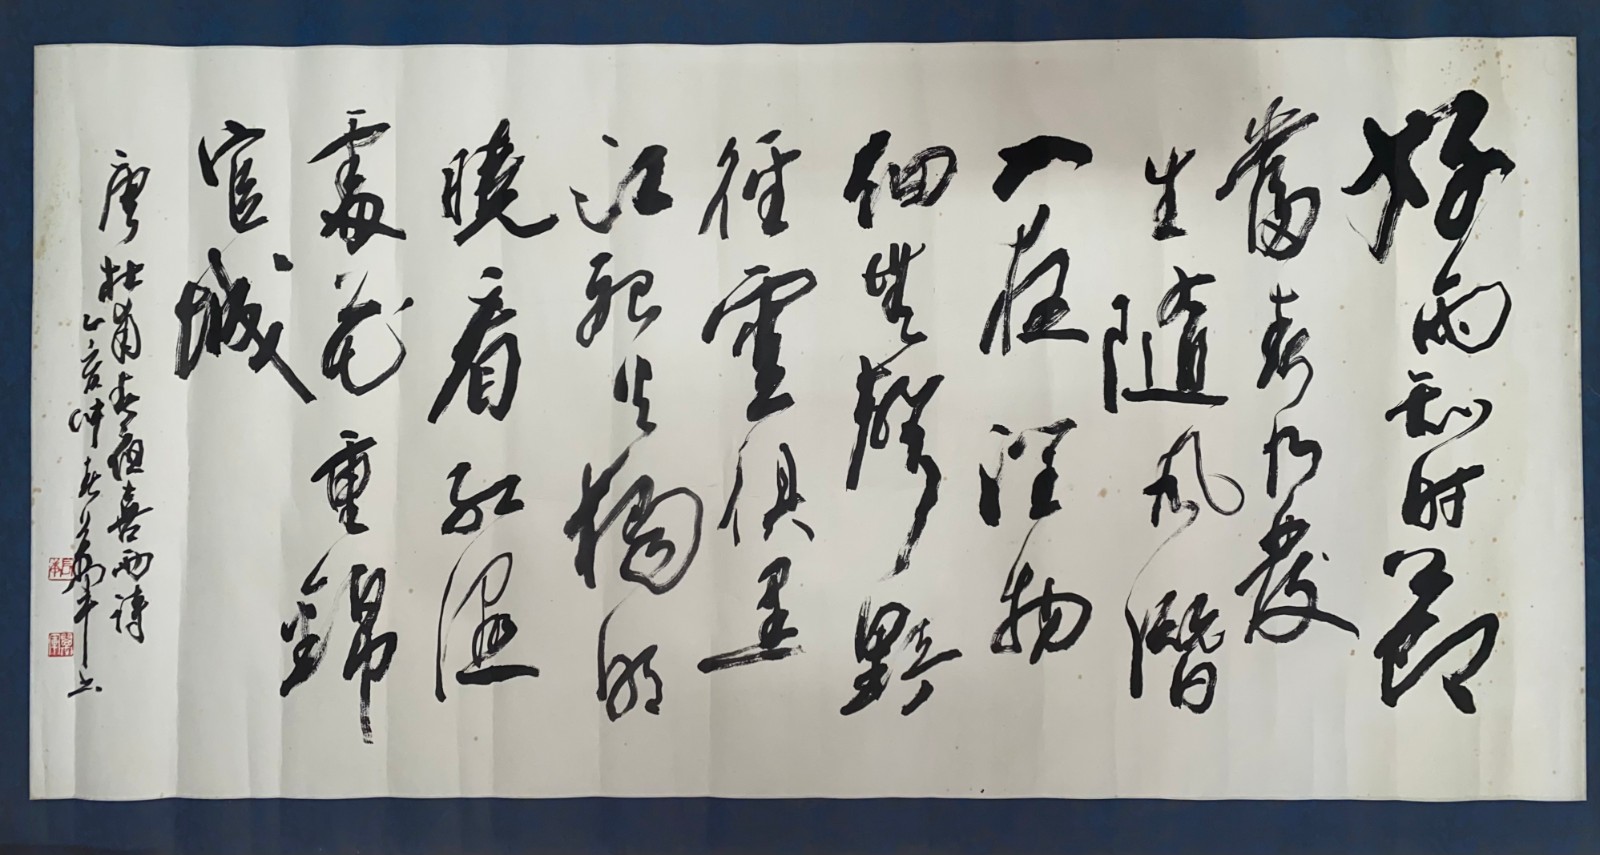 好雨知时節
當春乃發
生隨風潛
入夜潤物
細無聲野
徑雲俱黑
江船火獨明
曉看紅濕
處花重錦
官城
唐杜甫春夜喜雨詩
乙亥仲春